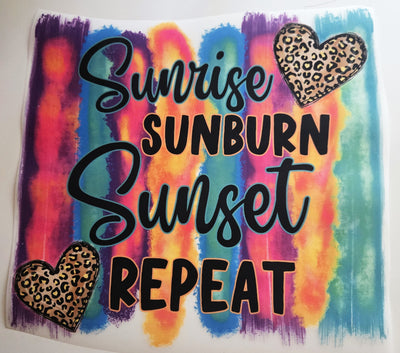 Sunrise
SUNBURN
Sunset
REPEAT